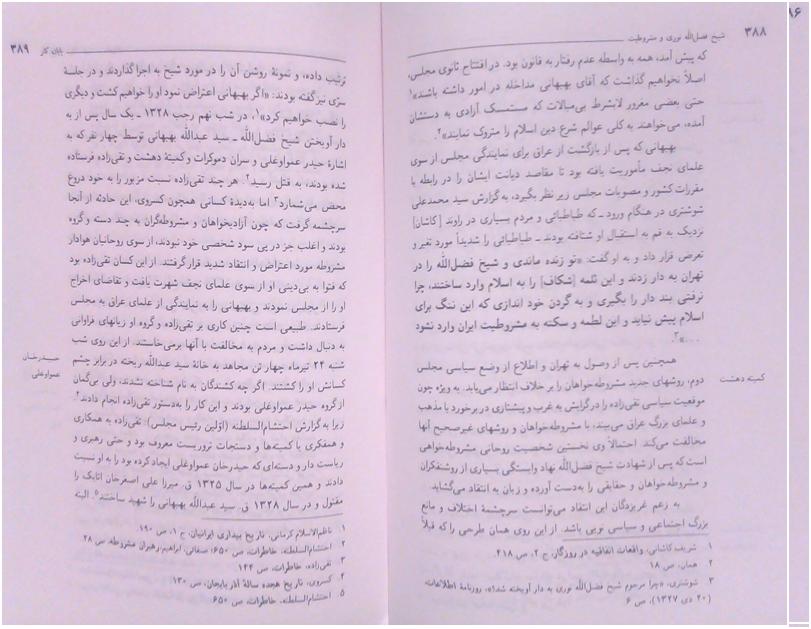 ۳۸۸
شیخ فضل‌الله نوری و مشروطیت
که پیش آمد، همه به واسطه عدم رفتار به قانون بود. در افتتاح ثانوی مجلس،
اصلاً نخواهیم گذاشت که آقای بهبهانی مداخله در امور داشته باشند»۱
حتی بعضی مغرور لابشرط بی‌مبالات که مستمسک آزادی به دستشان
آمده، می‌خواهند به کلی عوالم شرع دین اسلام را متروک نمایند»۲.
بهبهانی که پس از بازگشت از عراق برای نمایندگی مجلس از سوی
علمای نجف مأموریت یافته بود تا مقاصد دیانت ایشان را در رابطه با
مقررات کشور و مصوبات مجلس زیر نظر بگیرد، به گزارش سید محمدعلی
شوشتری در هنگام ورود ـ که طباطبائی و مردم بسیاری در راوند [کاشان]
نزدیک به قم به استقبال او شتافته بودند ـ طباطبائی را شدیداً مورد تغیر و
تعرض قرار داد و به او گفت: «تو زنده ماندی و شیخ فضل‌الله را در
تهران به دار زدند و این ثلمه [شکاف] را به اسلام وارد ساختند، چرا
نرفتی بند دار را بگیری و به گردن خود اندازی که این ننگ برای
اسلام پیش نیاید و این لطمه و سکته به مشروطیت ایران وارد نشود
...»۳.
همچنین پس از وصول به تهران و اطلاع از وضع سیاسی مجلس
کمیته دهشت
دوم، روشهای جدید مشروطه‌خواهان را بر خلاف انتظار می‌یابد. به ویژه چون
موقعیت سیاسی تقی‌زاده را در گرایش به غرب و پیشتازی در برخورد با مذهب
و علمای بزرگ عراق می‌بیند، با مشروطه‌خواهان و روشهای غیرصحیح آنها
مخالفت می‌کند. احتمالاً وی نخستین شخصیت روحانی مشروطه‌خواهی
است که پس از شهادت شیخ فضل‌الله نهاد وابستگی بسیاری از روشنفکران
و مشروطه‌خواهان و حقایقی را به‌دست آورده و زبان به انتقاد می‌گشاید.
به زعم غربزدگان این انتقاد می‌توانست سرچشمهٔ اختلاف و مانع
بزرگ اجتماعی و سیاسی نوپی باشد. از این روی همان طرحی را که قبلاً
۱ شریف کاشانی، واقعات اتفاقیه در روزگار، ج ۲، ص ۴۱۸.
۲ همان، ص ۱۸
۳ شوشتری، «چرا مرحوم شیخ فضل‌الله نوری به دار آویخته شد»، روزنامهٔ اطلاعات
(۲۰ دی ۱۳۲۷)، ص ۶
پایان کار ۳۸۹
ترتیب داده، و نمونهٔ روشن آن را در مورد شیخ به اجرا گذاردند و در جلسهٔ
سرّی نیز گفته بودند: «اگر بهبهانی اعتراض نمود او را خواهیم کشت و دیگری
را نصب خواهیم کرد»۱، در شب نهم رجب ۱۳۲۸ ـ یک سال پس از به
دار آویختن شیخ فضل‌الله ـ سید عبدالله بهبهانی توسط چهار نفر که به
اشارهٔ حیدر عمواوغلی و سران دموکرات و کمیتهٔ دهشت و تقی‌زاده فرستاده
شده بودند، به قتل رسید۲. هر چند تقی‌زاده نسبت مزبور را به خود دروغ
محض می‌شمارد۳ اما به‌دیدهٔ کسانی همچون کسروی، این حادثه از آنجا
سرچشمه گرفت که چون آزادیخواهان و مشروطه‌گران به چند دسته و گروه
بودند و اغلب جز در پی سود شخصی خود نبودند، از سوی روحانیان هوادار
مشروطه مورد اعتراض و انتقاد شدید قرار گرفتند. از این کسان تقی‌زاده بود
که فتوا به بی‌دینی او از سوی علمای نجف شهرت یافت و تقاضای اخراج
او را از مجلس نمودند و بهبهانی را به نمایندگی از علمای عراق به مجلس
فرستادند. طبیعی است چنین کاری بر تقی‌زاده و گروه او زیانهای فراوانی
به دنبال داشت و مردم به مخالفت با آنها برمی‌خاستند. از این روی شب
شنبه ۲۴ تیرماه چهار تن مجاهد به خانهٔ سید عبدالله ریخته در برابر چشم
حیدرخان
عمواوغلی
کسانش او را کشتند. اگر چه کشندگان به نام شناخته نشدند، ولی بی‌گمان
از گروه حیدر عمواوغلی بودند و این کار را به‌دستور تقی‌زاده انجام دادند۴.
زیرا به گزارش احتشام‌السلطنه (اوّلین رئیس مجلس): تقی‌زاده به همکاری
و همفکری با کمیته‌ها و دستجات تروریست معروف بود و حتی رهبری و
ریاست دار و دسته‌ای که حیدرخان عمواوغلی ایجاد کرده بود را به او نسبت
دادند و همین کمیته‌ها در سال ۱۳۲۵ ق. میرزا علی اصغرخان اتابک را
مقتول و در سال ۱۳۲۸ ق. سید عبدالله بهبهانی را شهید ساختند۵. البته
۱ ناظم‌الاسلام کرمانی، تاریخ بیداری ایرانیان، ج ۱، ص ۱۹۰.
۲ احتشام‌السلطنه، خاطرات، ص ۶۵۰؛ صفائی، ابراهیم، رهبران مشروطه، ص ۲۸
۳ تقی‌زاده، خاطرات، ص ۱۴۴
۴ کسروی، تاریخ هجده سالهٔ آذربایجان، ص ۱۳۰
۵ احتشام‌السلطنه، خاطرات، ص ۶۵۰.